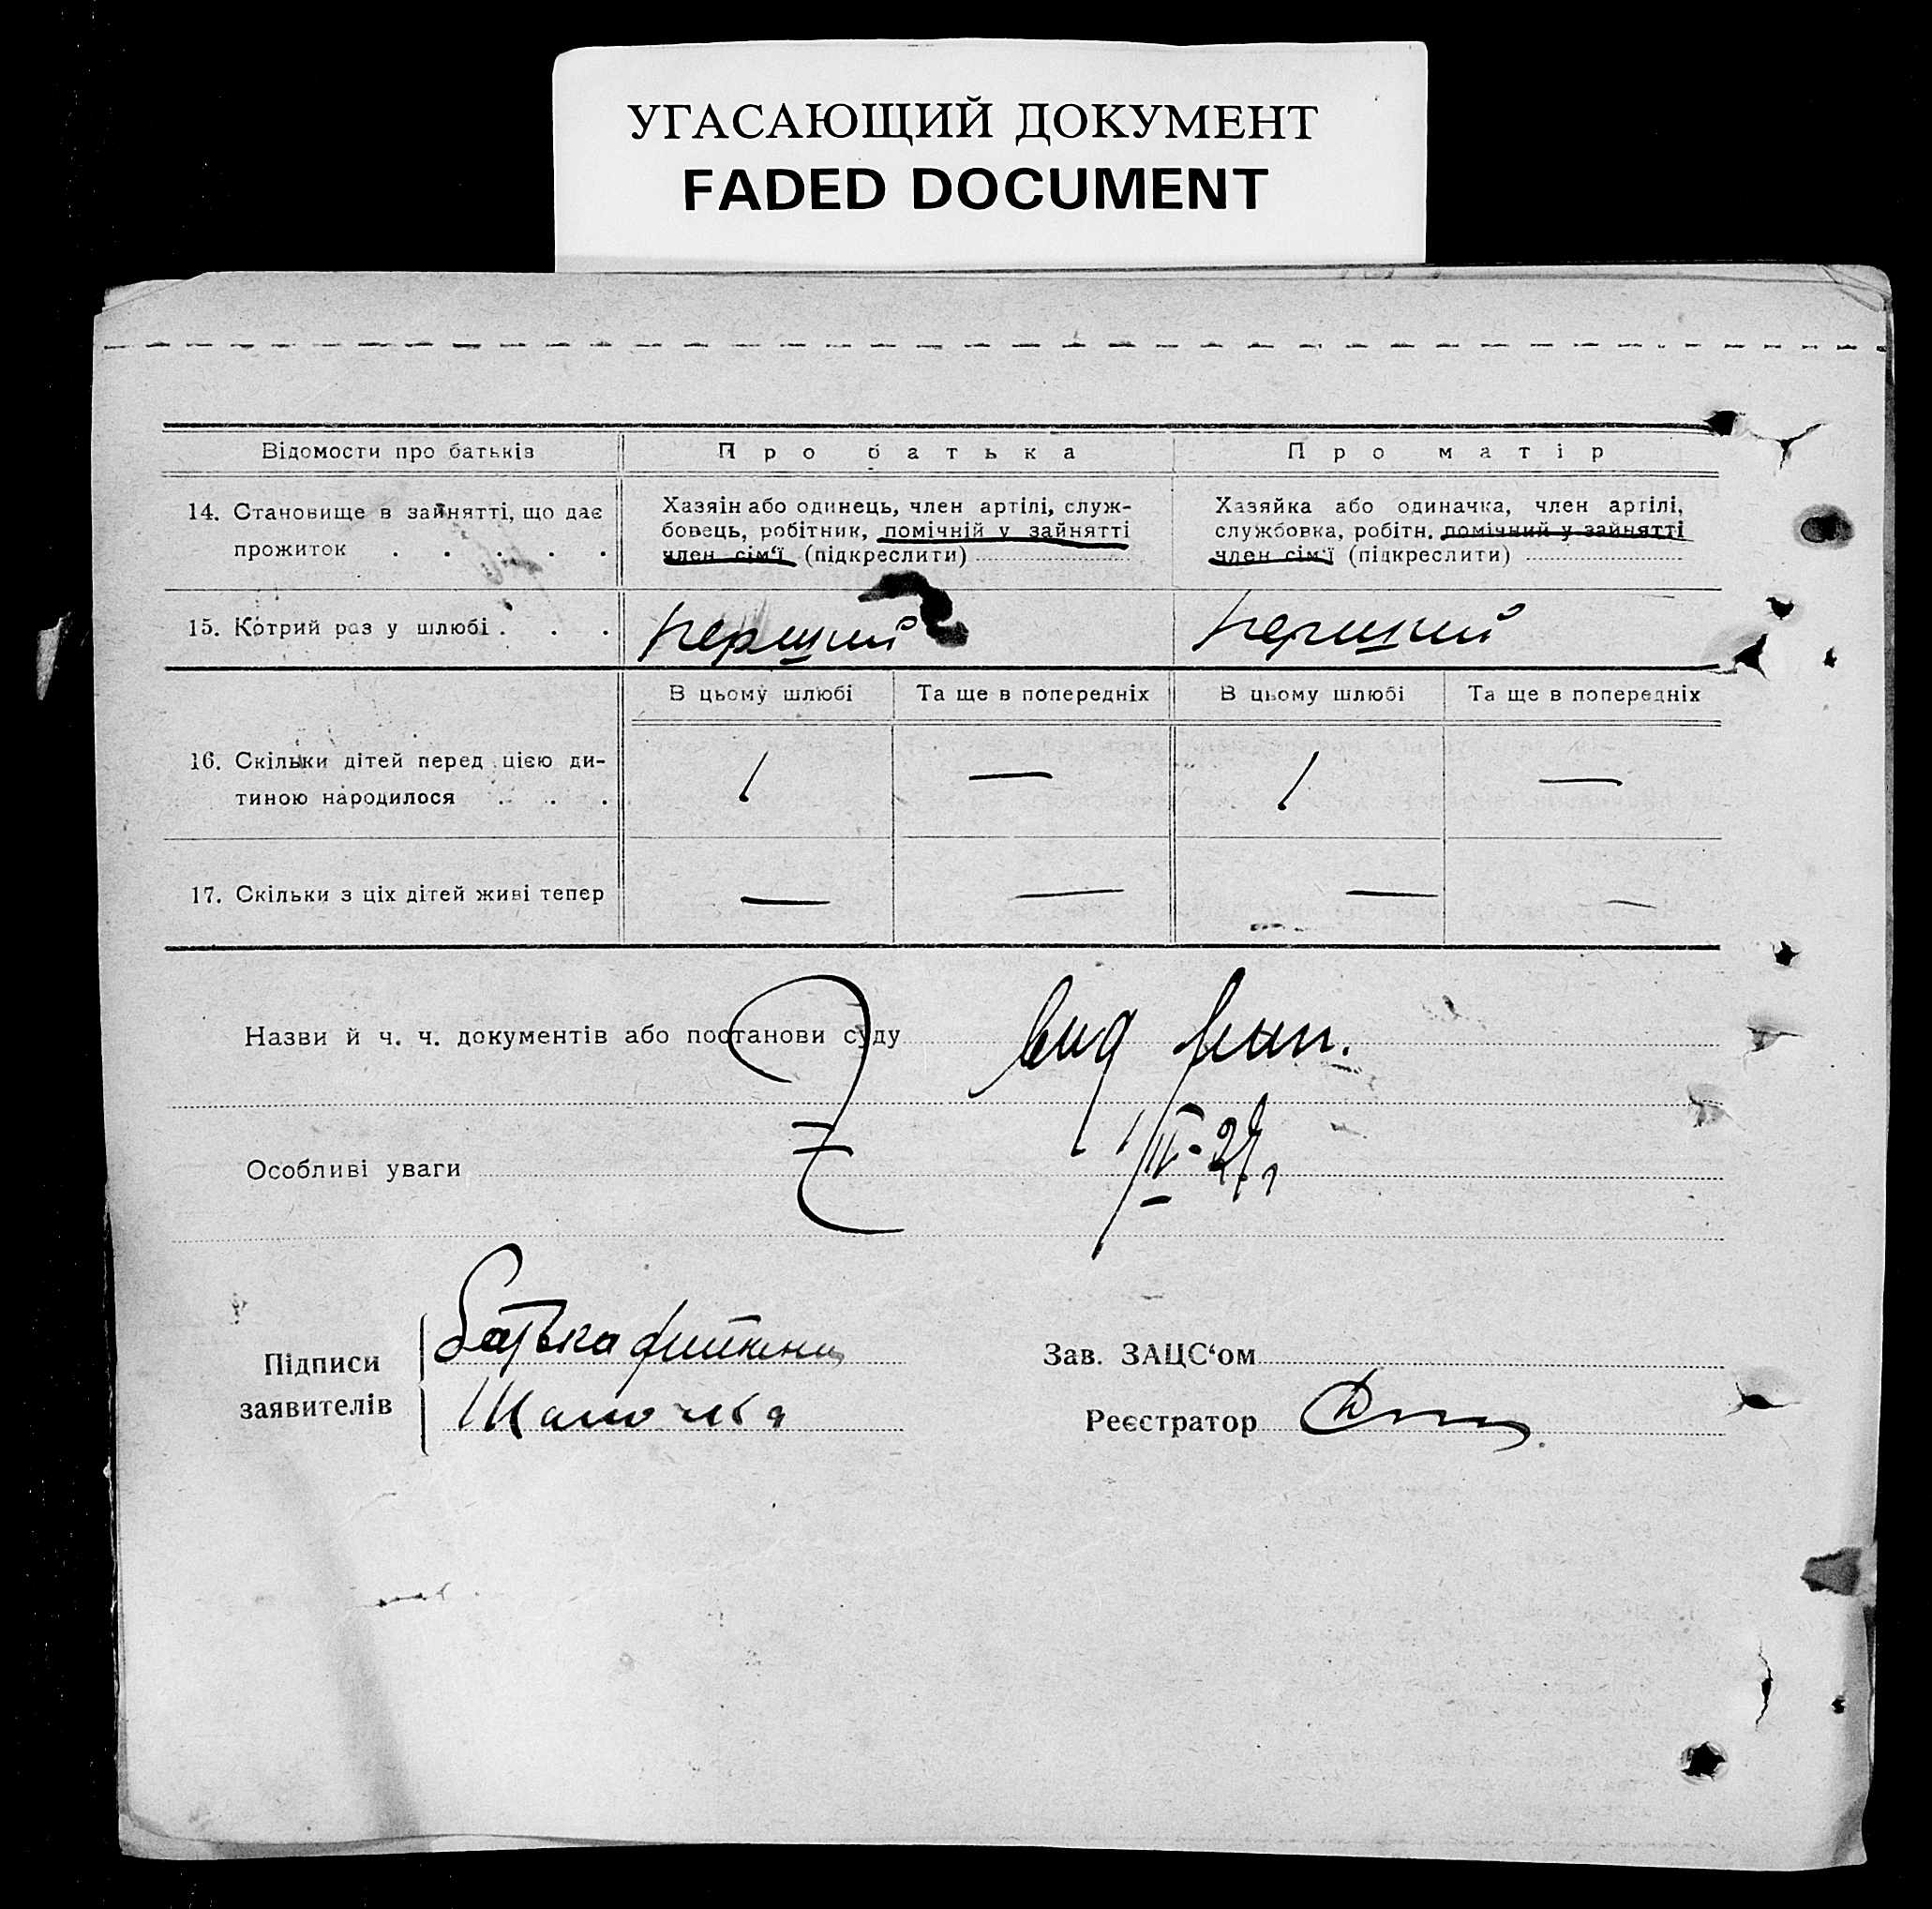 УГАСАЮЩИЙ ДОКУМЕНТ
FADED DOCUMENT
Відомости про батьків
Про батька
Про матір
14. Становище в зайнятті, що дає
прожиток . . . . .
Хазяін або одинець, член артілі, служ-
бовець, робітник, помічній у зайнятті
член сім‘ї (підкреслити)
Хазяйка або одиначка, член артілі,
службовка, робітн. помічний у зайнятті
член сім‘ї (підкреслити)
15. Котрий раз у шлюбі . . .
перший
перший
В цьому шлюбі
Та ще в попередніх
В цьому шлюбі
Та ще в попередніх
16. Скільки дітей перед цією ди-
тиною народилося . . .
1 — 1 —
17. Скільки з ціх дітей живі тепер
— — — —
Назви й ч. ч. документів або постанови суду
вид
Особливі уваги
Підписи
заявителів
Батька
Зав. ЗАЦС‘ом
Реєстратор